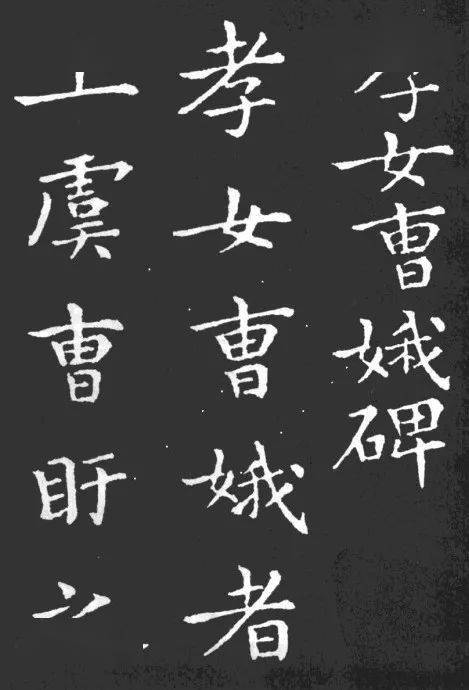 孝女曹娥碑
孝女曹娥者
上虞曹盱